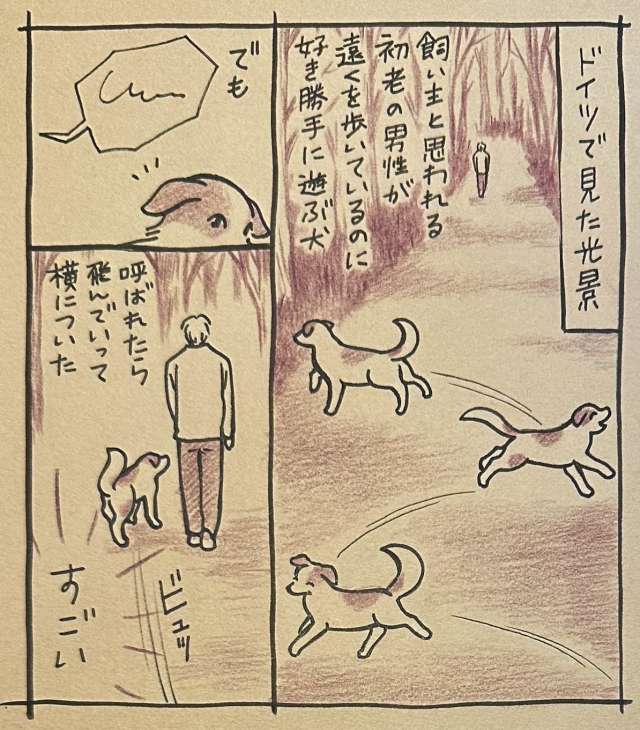 ドイツで見た光景
飼い主と思われる
初老の男性が
遠くを歩いているのに
好き勝手に遊ぶ犬
でも
呼ばれたら
飛んでいって
横についた
ビュッ
すごい